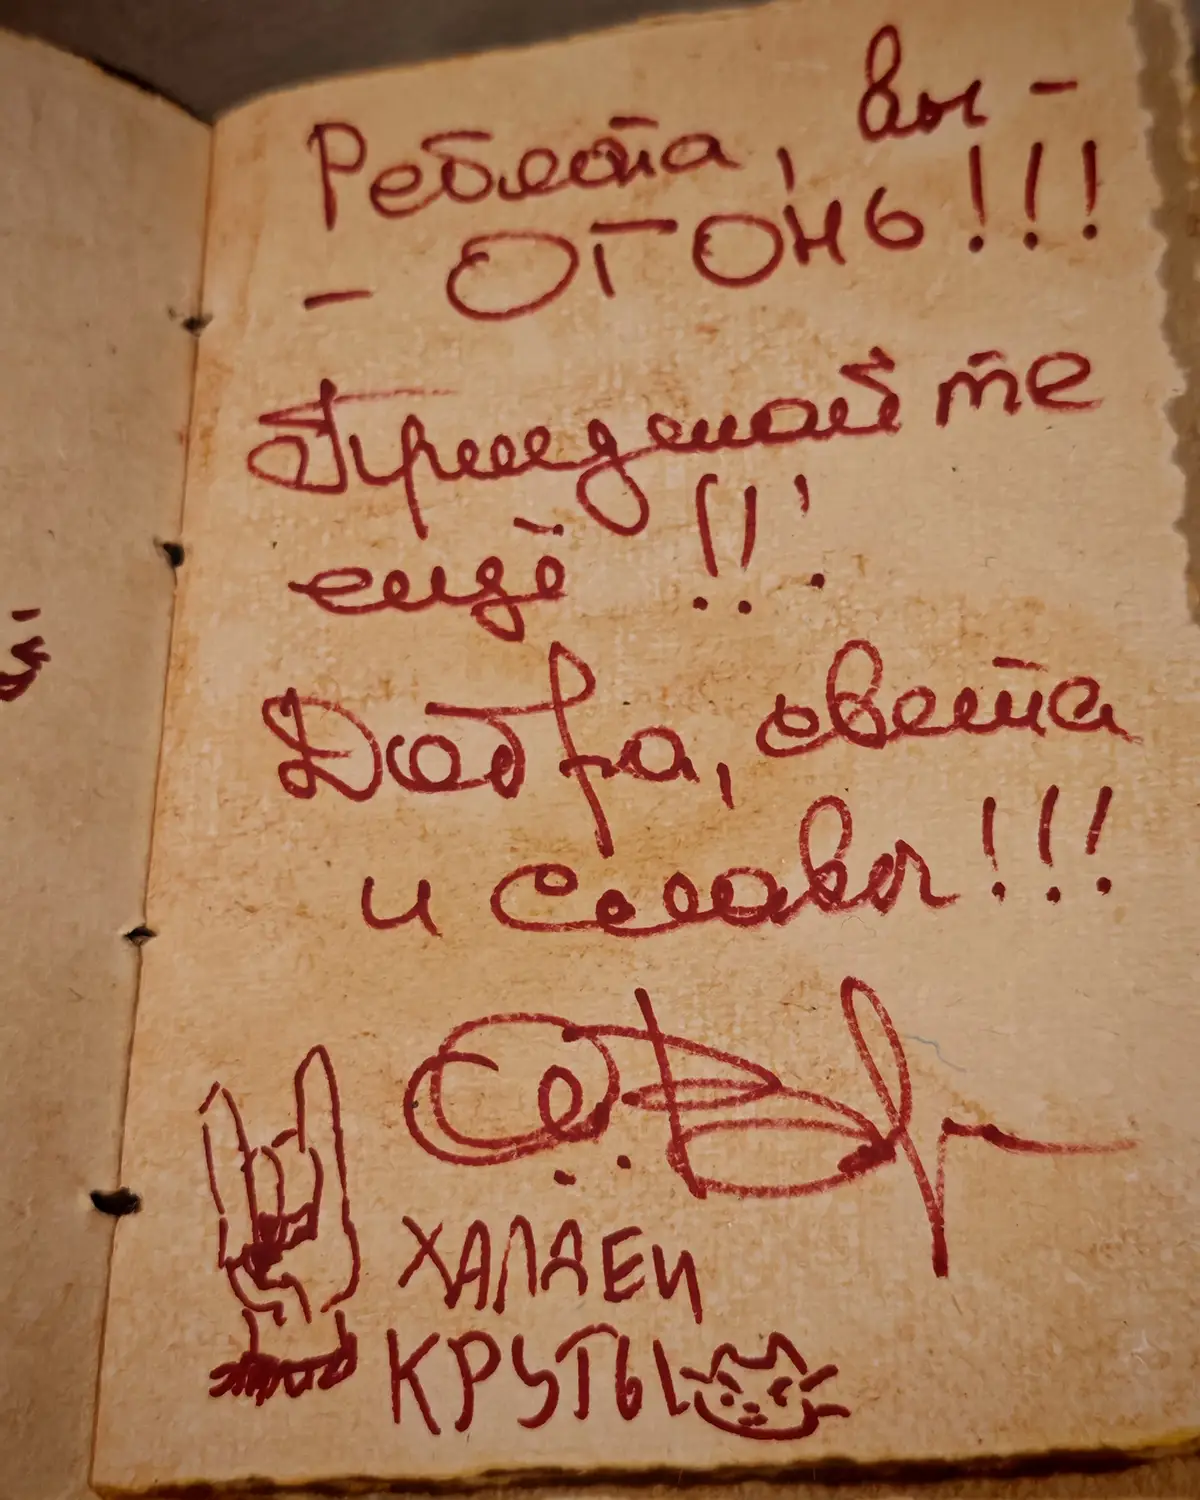 Ребята, вы -
- ОГОНЬ!!!
Придумайте
ещё !!!
Добра, света
и славы!!!
ХАЛДЕИ
КРУТЫ